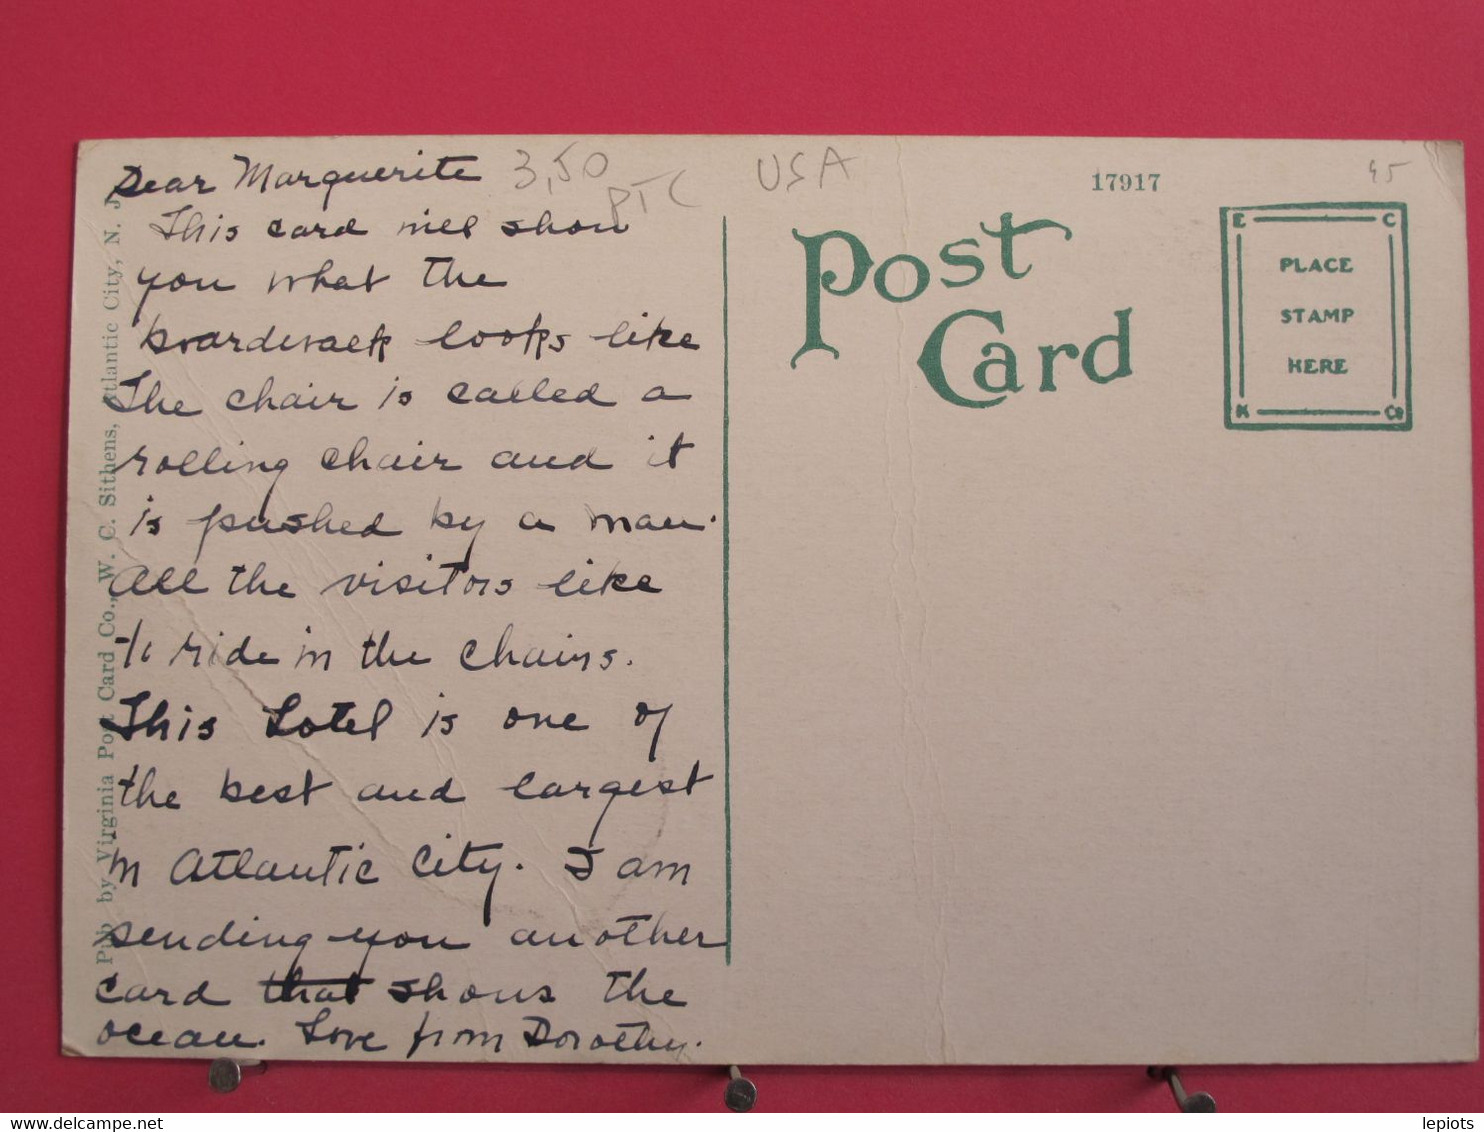 Dear Marguerite
This card will show
you what the
boardwalk looks like
The chair is called a
rolling chair and it
is pushed by a man.
All the visitors like
to ride in the chairs.
This Hotel is one of
the best and largest
in Atlantic City. I am
sending you another
card that shows the
ocean. Love from Dorothy.
3,50
PTC
USA
Pub by Virginia Post Card Co., W. C. Sithens, Atlantic City, N. J.
17917
45
Post
Card
E C
PLACE
STAMP
HERE
K Co
delcampe.net
lepiots